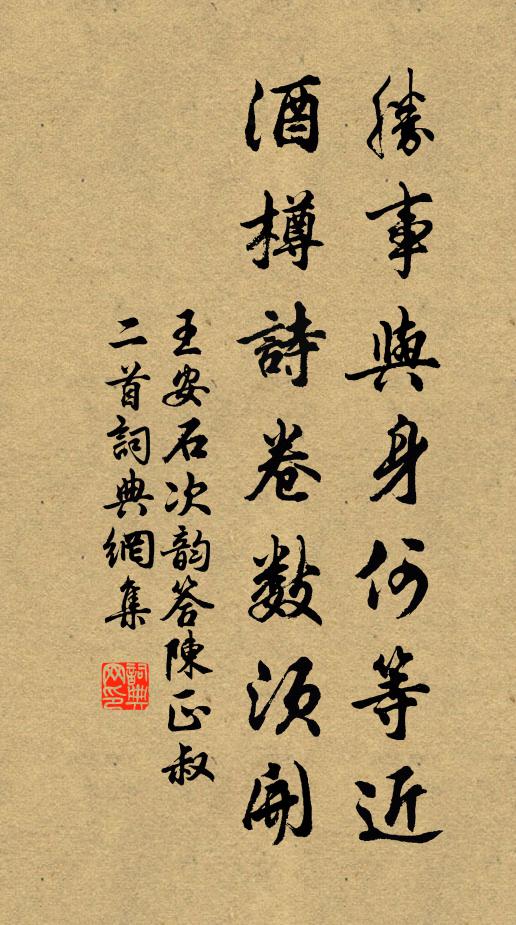 勝事與身何等近
酒樽詩卷數須開
王安石次韵答陳正叔
二首詞典網集
詞典
网印